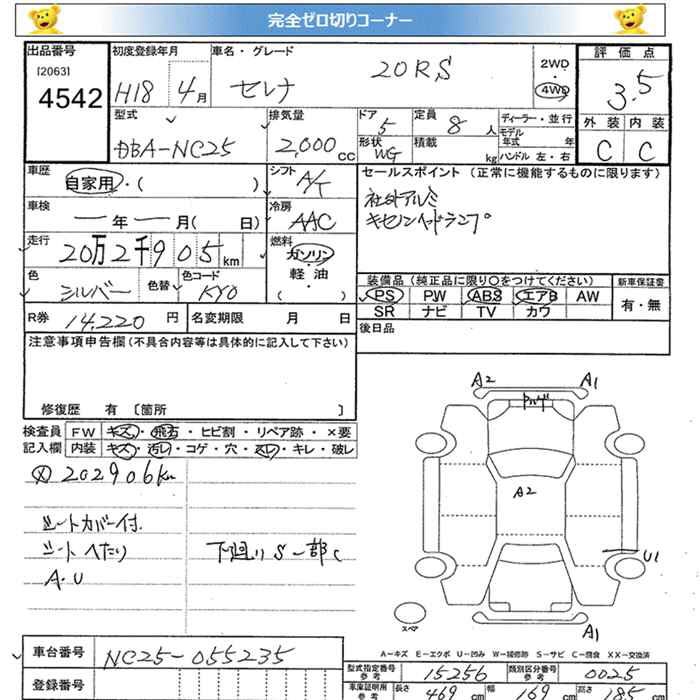 完全ゼロ切りコーナー
出品番号
[2063]
4542
初度登録年月
H18 4月
車名・グレード
セレナ 20RS
2WD
・
4WD
評価点
3.5
型式
DBA-NC25
排気量
2,000 CC
ドア
5
形状
WG
定員
8 人
積載
kg
ディーラー・並行
モデル年式 年
ハンドル 左・右
外装 内装
C C
車歴
自家用・( )
シフト
A/T
セールスポイント (正常に機能するものに限ります)
社外アルミ
キセノンヘッドランプ
車検
ー年ー月( 日)
冷房
AAC
走行
20万2千905km
燃料
ガソリン
・
軽・油
( )
色
シルバー
色替
色コード
KY0
装備品(純正品に限り○をつけてください)
PS PW ABS エアB AW
SR ナビ TV カワ
新車保証書
有・無
R券 14,220 円
名変期限 月 日
後日品
注意事項申告欄(不具合内容等は具体的に記入して下さい)
修復歴 有 〔箇所 〕
検査員記入欄
FW キズ・飛石・ヒビ割・リペア跡・×要
内装 キズ・汚レ・コゲ・穴・スレ・キレ・破レ
202906km
シートカバー付.
シートへたり
A・U
下廻りS一部C
A2 A1
A2
U1
A1
スペア
A-キズ E-エクボ U-凹み W-補修跡 S-サビ C-腐食 XX-交換済
車台番号 NC25-055235
登録番号
型式指定番号 参考 15256
類別区分番号 参考 0025
車庫証明用 参考 長さ 469 cm 幅 169 cm 高さ 185 cm